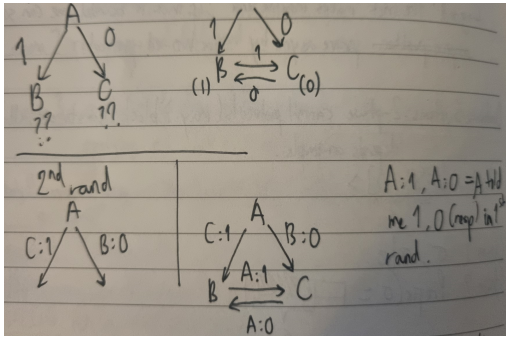 A
1 0
B C
?? ??
1 0
B 1 C
(1) 0 (0)
2nd rand
A
C:1 B:0
A
C:1 B:0
B A:1 C
A:0
A:1, A:0 = A told
me 1, 0 (resp) in 1st
rand.